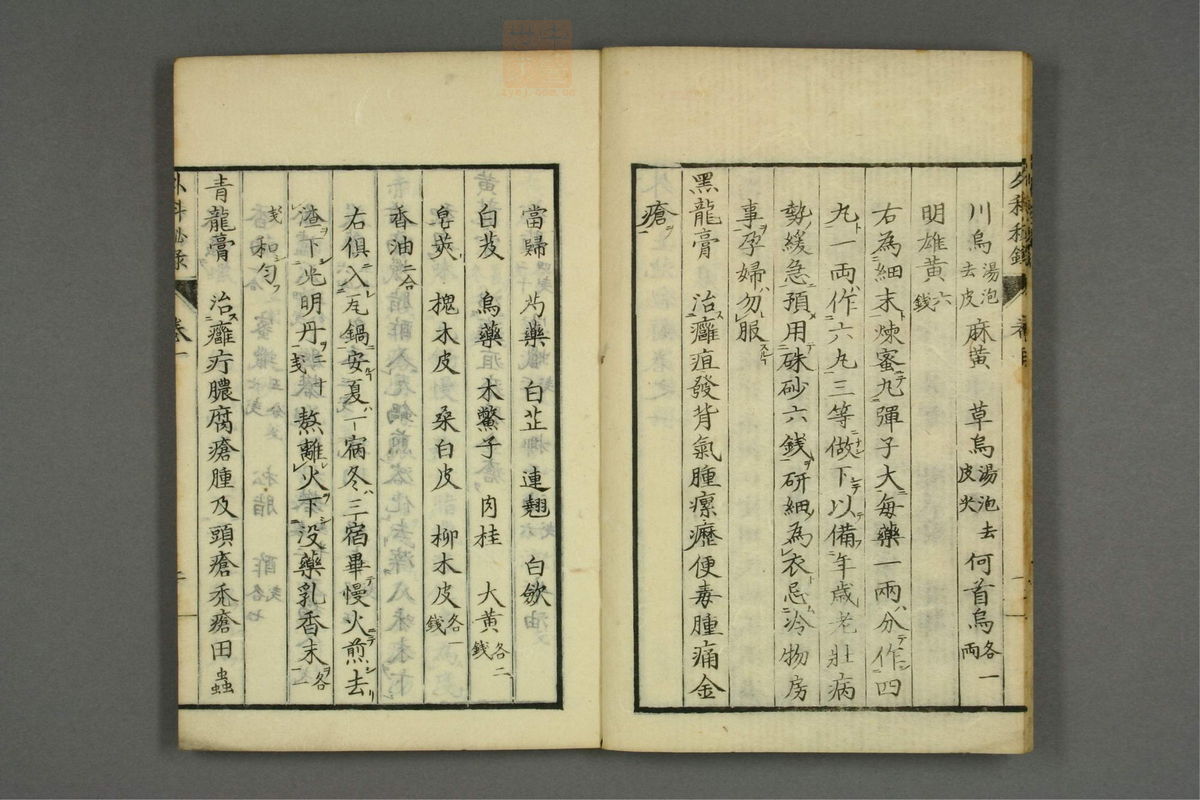 川烏湯泡去皮 麻黄 草烏湯泡去皮尖 何首烏各一両
明雄黄六錢
右為細末煉蜜丸彈子大毎藥一兩分作四
丸一両作六丸三等做下以備年歲老壯病
勢緩急預用硃砂六錢研細為衣忌冷物房
事孕婦勿服
黑龍膏 治癰疽發背氣腫瘰癧便毒腫痛金
瘡
當歸 芍藥 白芷 連翹 白歛
白芨 烏藥 木鱉子 肉桂 大黄各二錢
皂莢 槐木皮 桑白皮 柳木皮各一錢
香油二合
右俱入瓦鍋安夏一宿冬三宿畢慢火煎去
渣下光明丹十戔熬離火下没藥乳香末各一
戔和匀
青龍膏 治癰疔膿腐瘡腫及頭瘡禿瘡田蟲
外科秘录 卷一